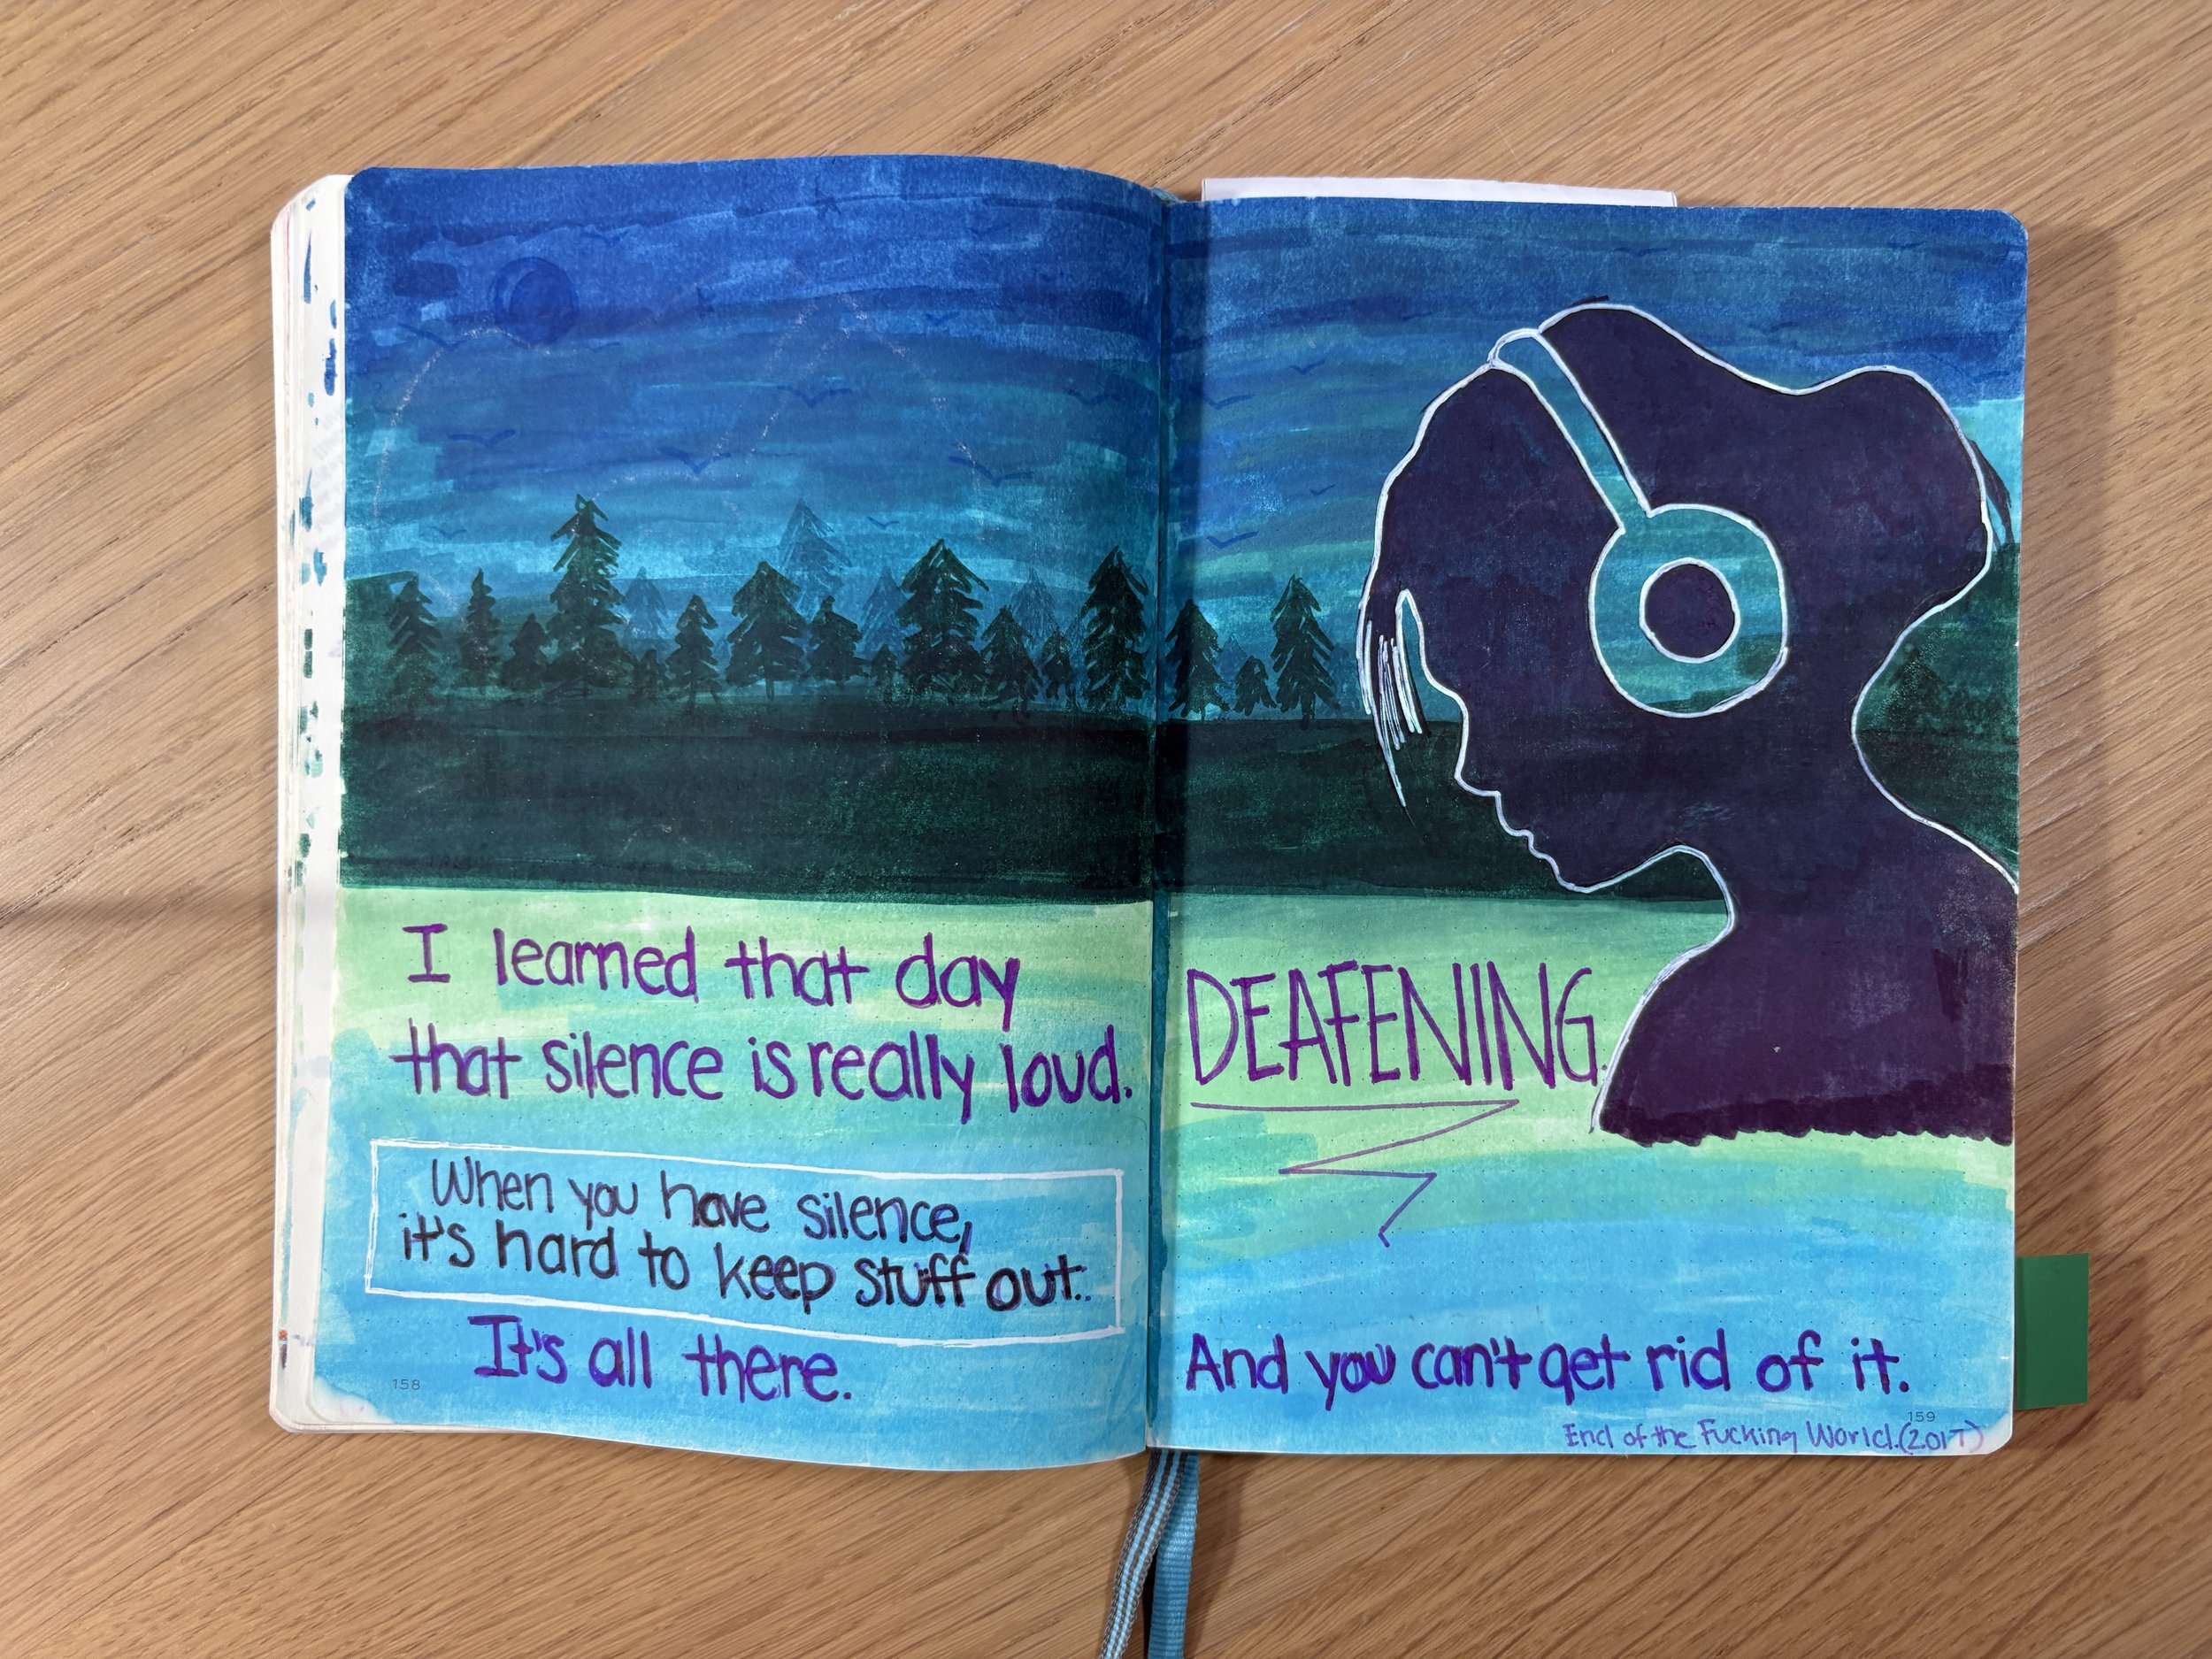 I learned that day
that silence is really loud.
When you have silence,
it's hard to keep stuff out.
It's all there.
158
DEAFENING.
And you can't get rid of it.
159
End of the Fucking World. (2017)